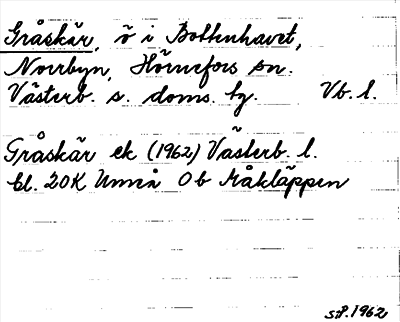 Gråskär, ö i Bottenhavet,
Norrbyn, Hörnefors sn.
Västerb. s. doms. hg. Vb. l.
Gråskär ek (1962) Västerb. l.
bl. 20K Umeå 0b Måkläppen
StP. 1962